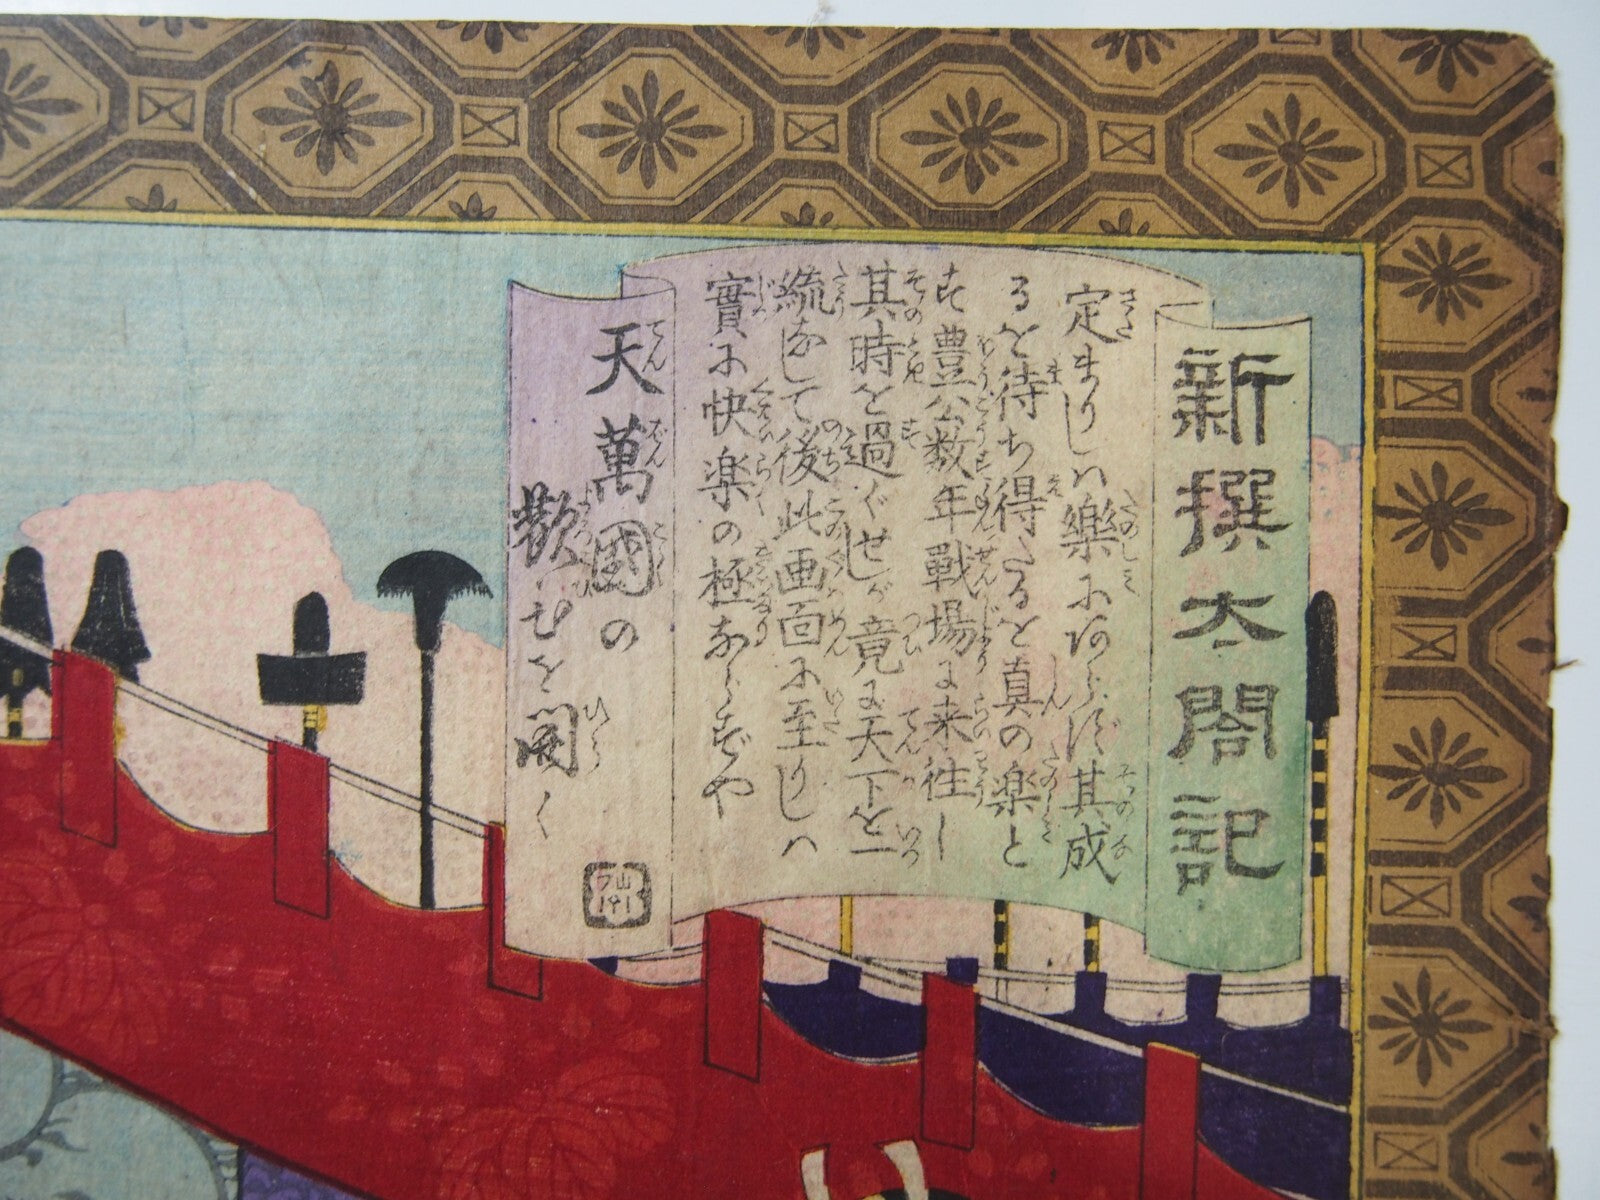 新撰太閤記
定まりしハ樂にあらず其成
るを待ち得たるを真の楽と
す豊公数年戰場に来往し
其時を過ぐせしが竟に天下を一
統なして後此画面に至りしハ
實に快楽の極ならずや
天萬國の
歡びを開く